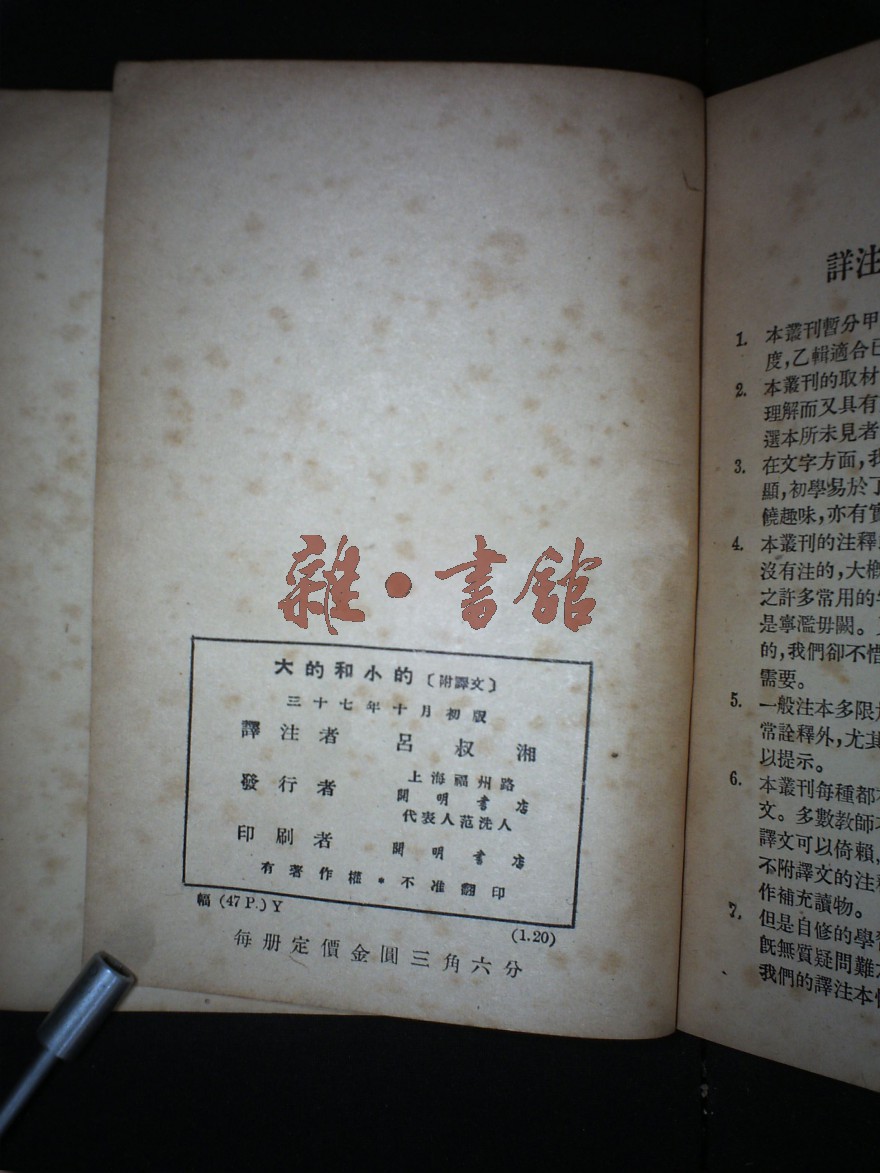 雜·書舘
大的和小的〔附譯文〕
三十七年十月初版
譯注者 呂叔湘
發行者 上海福州路
開明書店
代表人范洗人
印刷者 開明書店
有著作權·不准翻印
幅 (47 P.) Y (1.20)
每册定價金圓三角六分
詳注
1. 本叢刊暫分甲
度,乙輯適合已
2. 本叢刊的取材
理解而又具有
選本所未見者
3. 在文字方面,我
顯,初學易於了
饒趣味,亦有實
4. 本叢刊的注釋
沒有注的,大概
之許多常用的
是寧濫毋闕。
的,我們卻不惜
需要。
5. 一般注本多限於
常詮釋外,尤其
以提示。
6. 本叢刊每種都
文。多數教師
譯文可以倚賴,
不附譯文的注釋
作補充讀物。
7. 但是自修的學習
旣無質疑問難
我們的譯注本